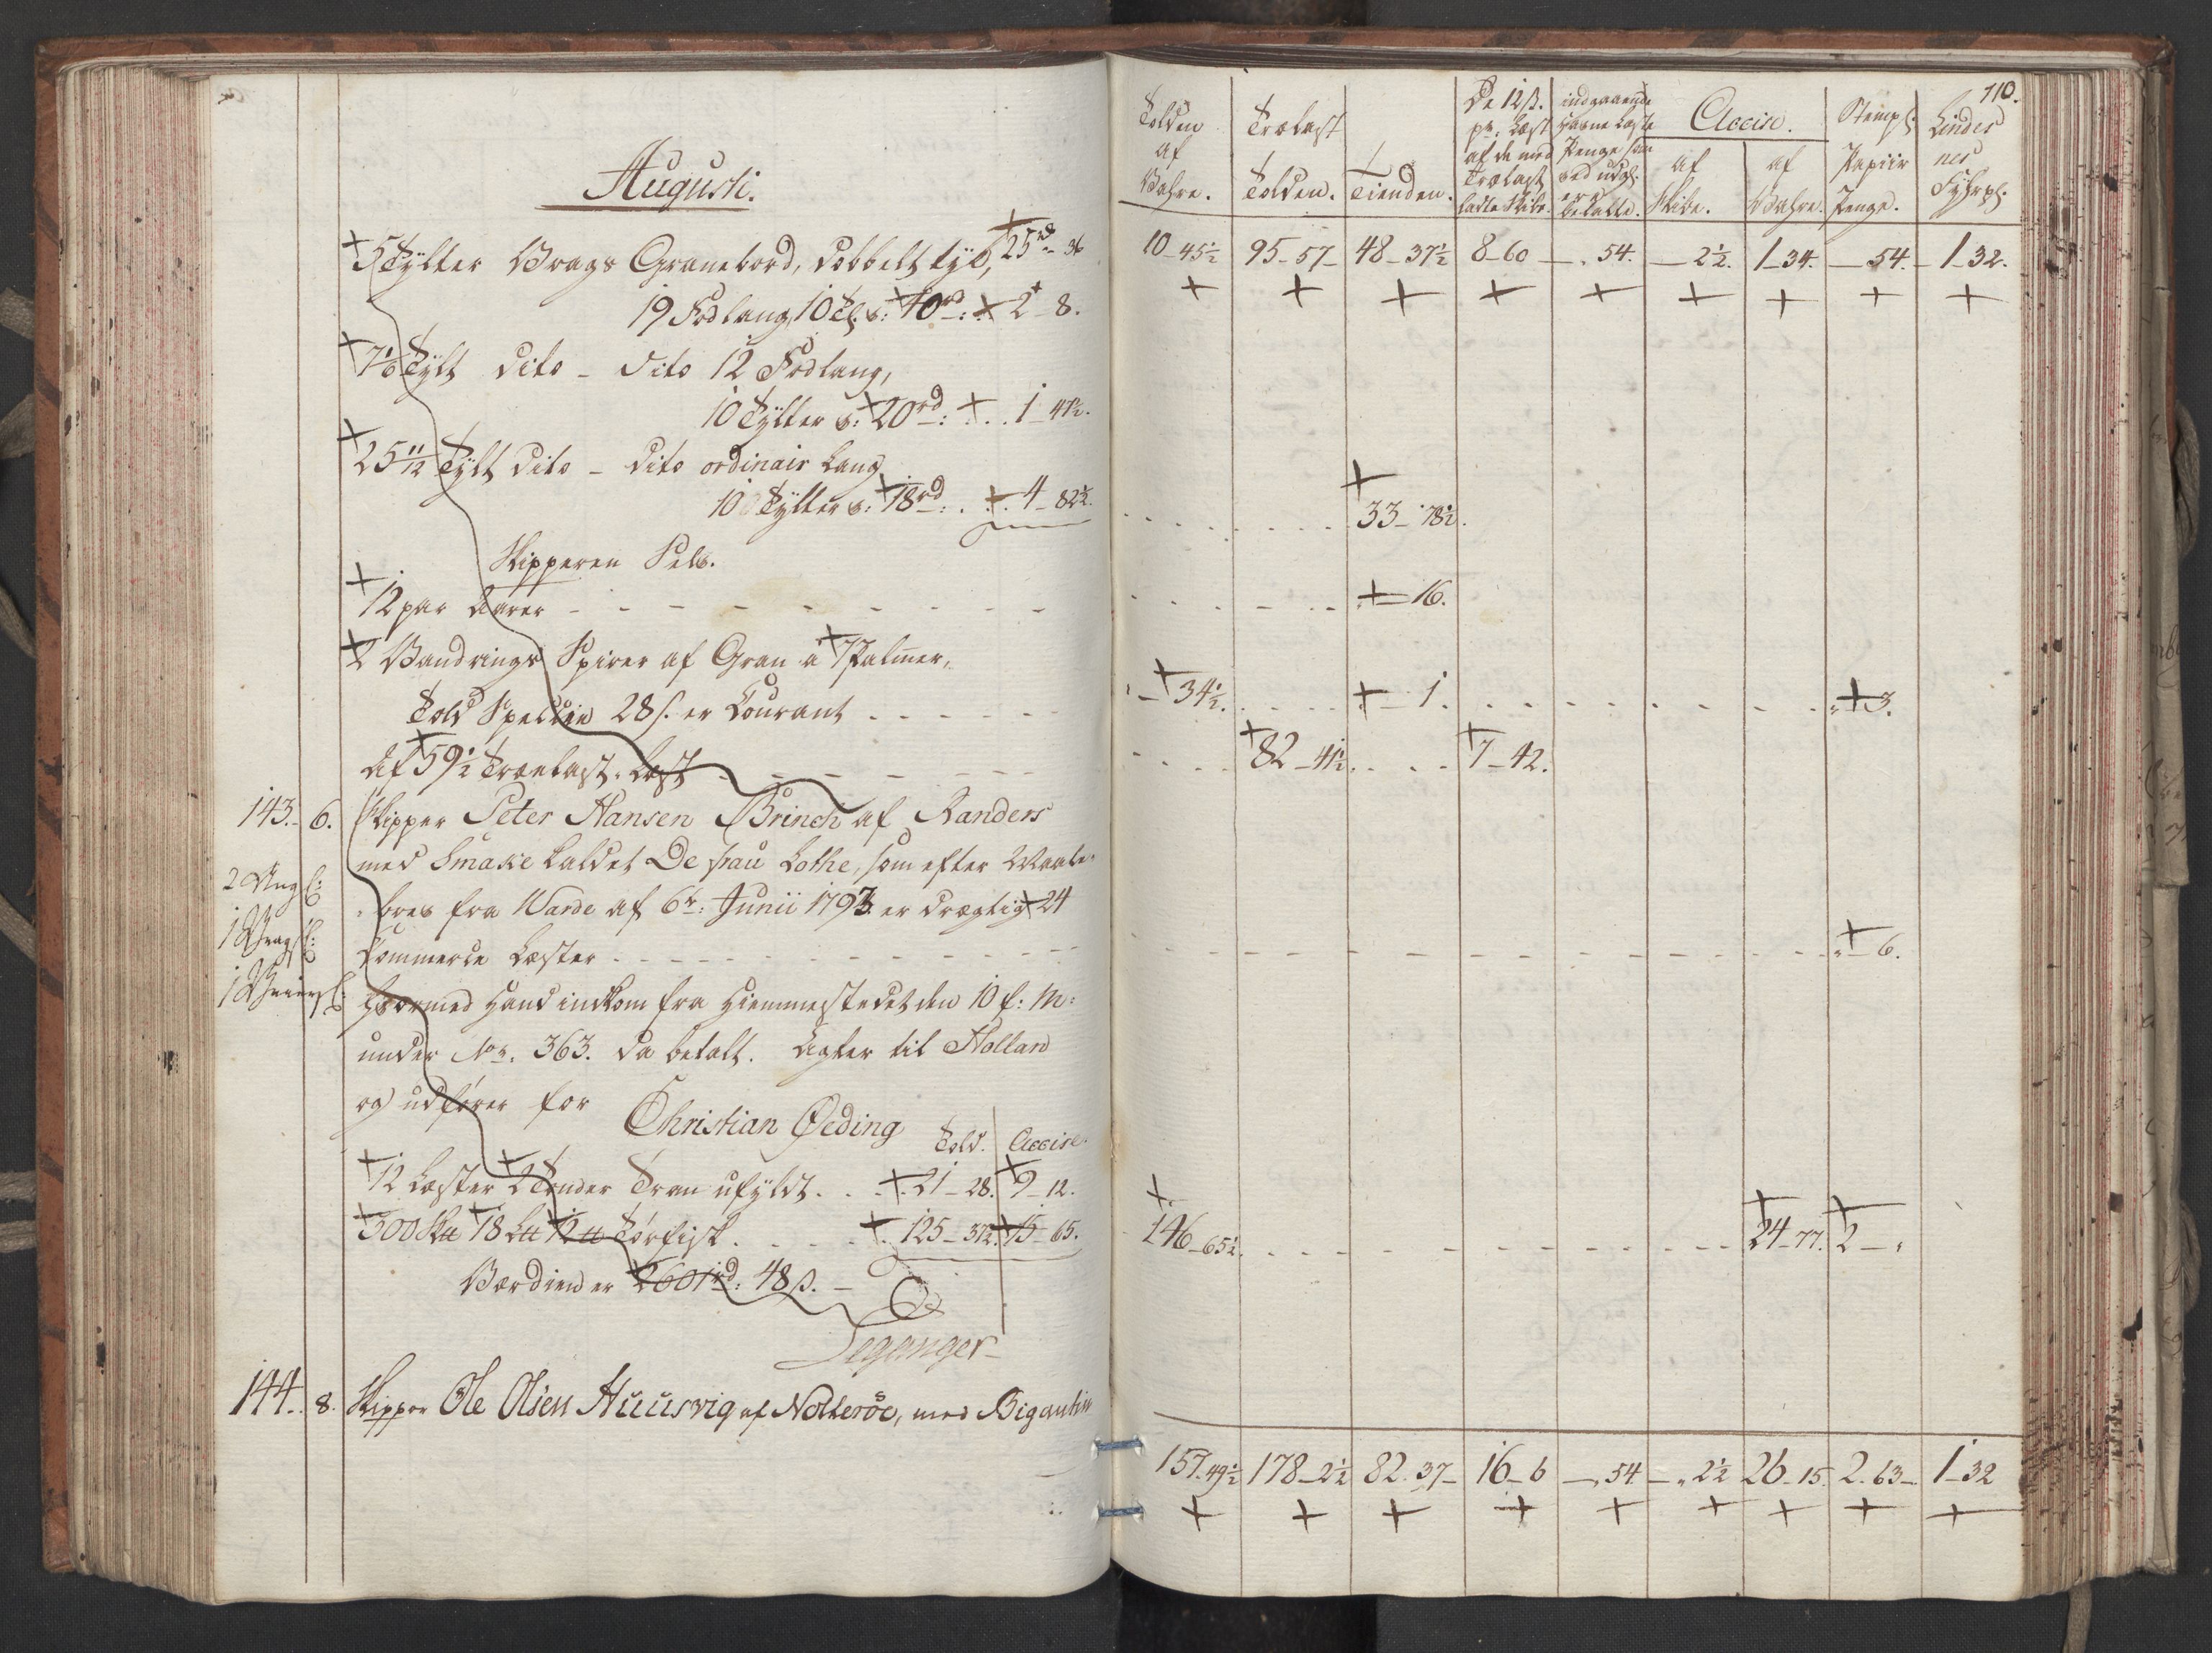 Augusti.
5 Tylter Vrags Granebord, dobbelt tyk, 25 rd - 36
19 Fod lang, 10 T: 40 rd: 2 - 8.
7 Tylt dito - dito 12 Fod lang,
10 Tylter 20 rd: . . 1 - 41½.
25 11/12 Tylt dito - dito ordinair lang
10 Tylter 18 rd: . . 4 - 82½.
Skipperen Selv.
12 par Aarer - - - - - - - -
2 Vandrings Spirer af Gran a 7 Palmer,
Told Specien 28 s. er Courant - - - - - -
Af 59½ Trælast Læst - - - - - -
143. 6. Skipper Peter Hansen Brinch af Randers
med Smakke kaldet De frau Lothe, som efter Maale-
2 Ung
brev fra Warde af 6te: Junii 1793. er drægtig 24
1 Vrag
Commerce Læster - - - - - - -
hvormed Hand indkom fra Hiemmestedet den 10 f: M:
under No. 363. da betalt. Agter til Holland
og udfører for Christian Øeding
Told. Accise.
12 Læster 2 Tønder Tran ufyldt. . . 21 - 28. 9 - 12.
300 18 12 Tørfisk . . . 125 - 37½. 15 - 65.
Værdien er 2601 rd: 48 s. -
Leganger
144. 8. Skipper Ole Olsen Huusvig af Nøtterøe, med Bigantin
110.
Tolden af Vahre.
Trælast Tolden.
Tienden.
De 12 s. pr: Læst af de med Trælast ladte Skibe.
indgaaende Havne Læste Penge som ved udg. er betalte.
Accise.
af Skibe.
af Vahre.
Stempl. Papiir Penge.
Lindes nes Fyhrp.
10 - 45½ 95 - 57 - 48 - 37½ 8 - 60 - . 54. - 2½. 1 - 34. - 54. - 1 - 32.
33 - 78½.
16.
34½. 1. 3.
82 - 41½. 7 - 42.
6.
146 - 65½. 24 - 77. 2 - .
157. 49½ 178 - 2½ 82. 37 - 16 - 6 - . 54 - . 2½ 26 - 15. 2. 63 - 1 - 32